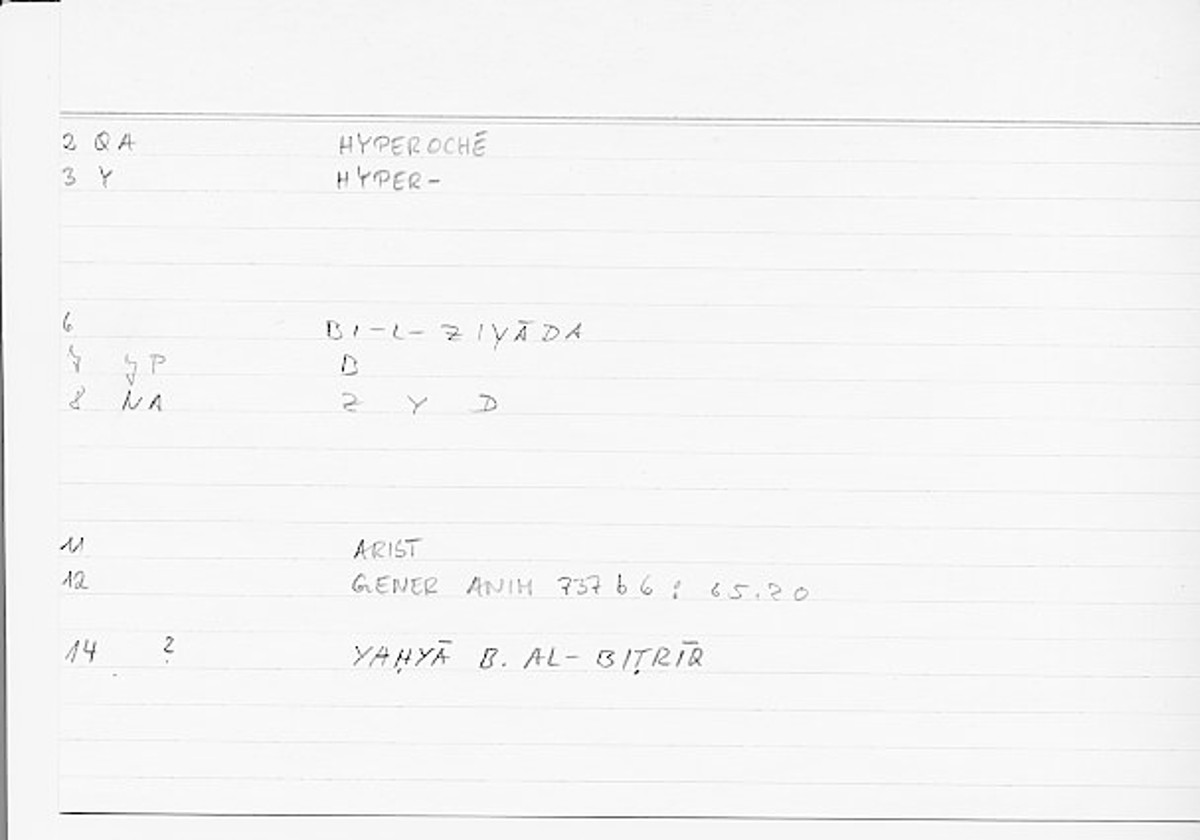 2 QA HYPEROCHĒ
3 Y HYPER-
6 BI-L-ZIYĀDA
7 YP B
8 NA Z Y D
11 ARIST
12 GENER ANIM 737 b 6 ; 65.20
14 ? YAḤYĀ B. AL-BIṬRĪQ